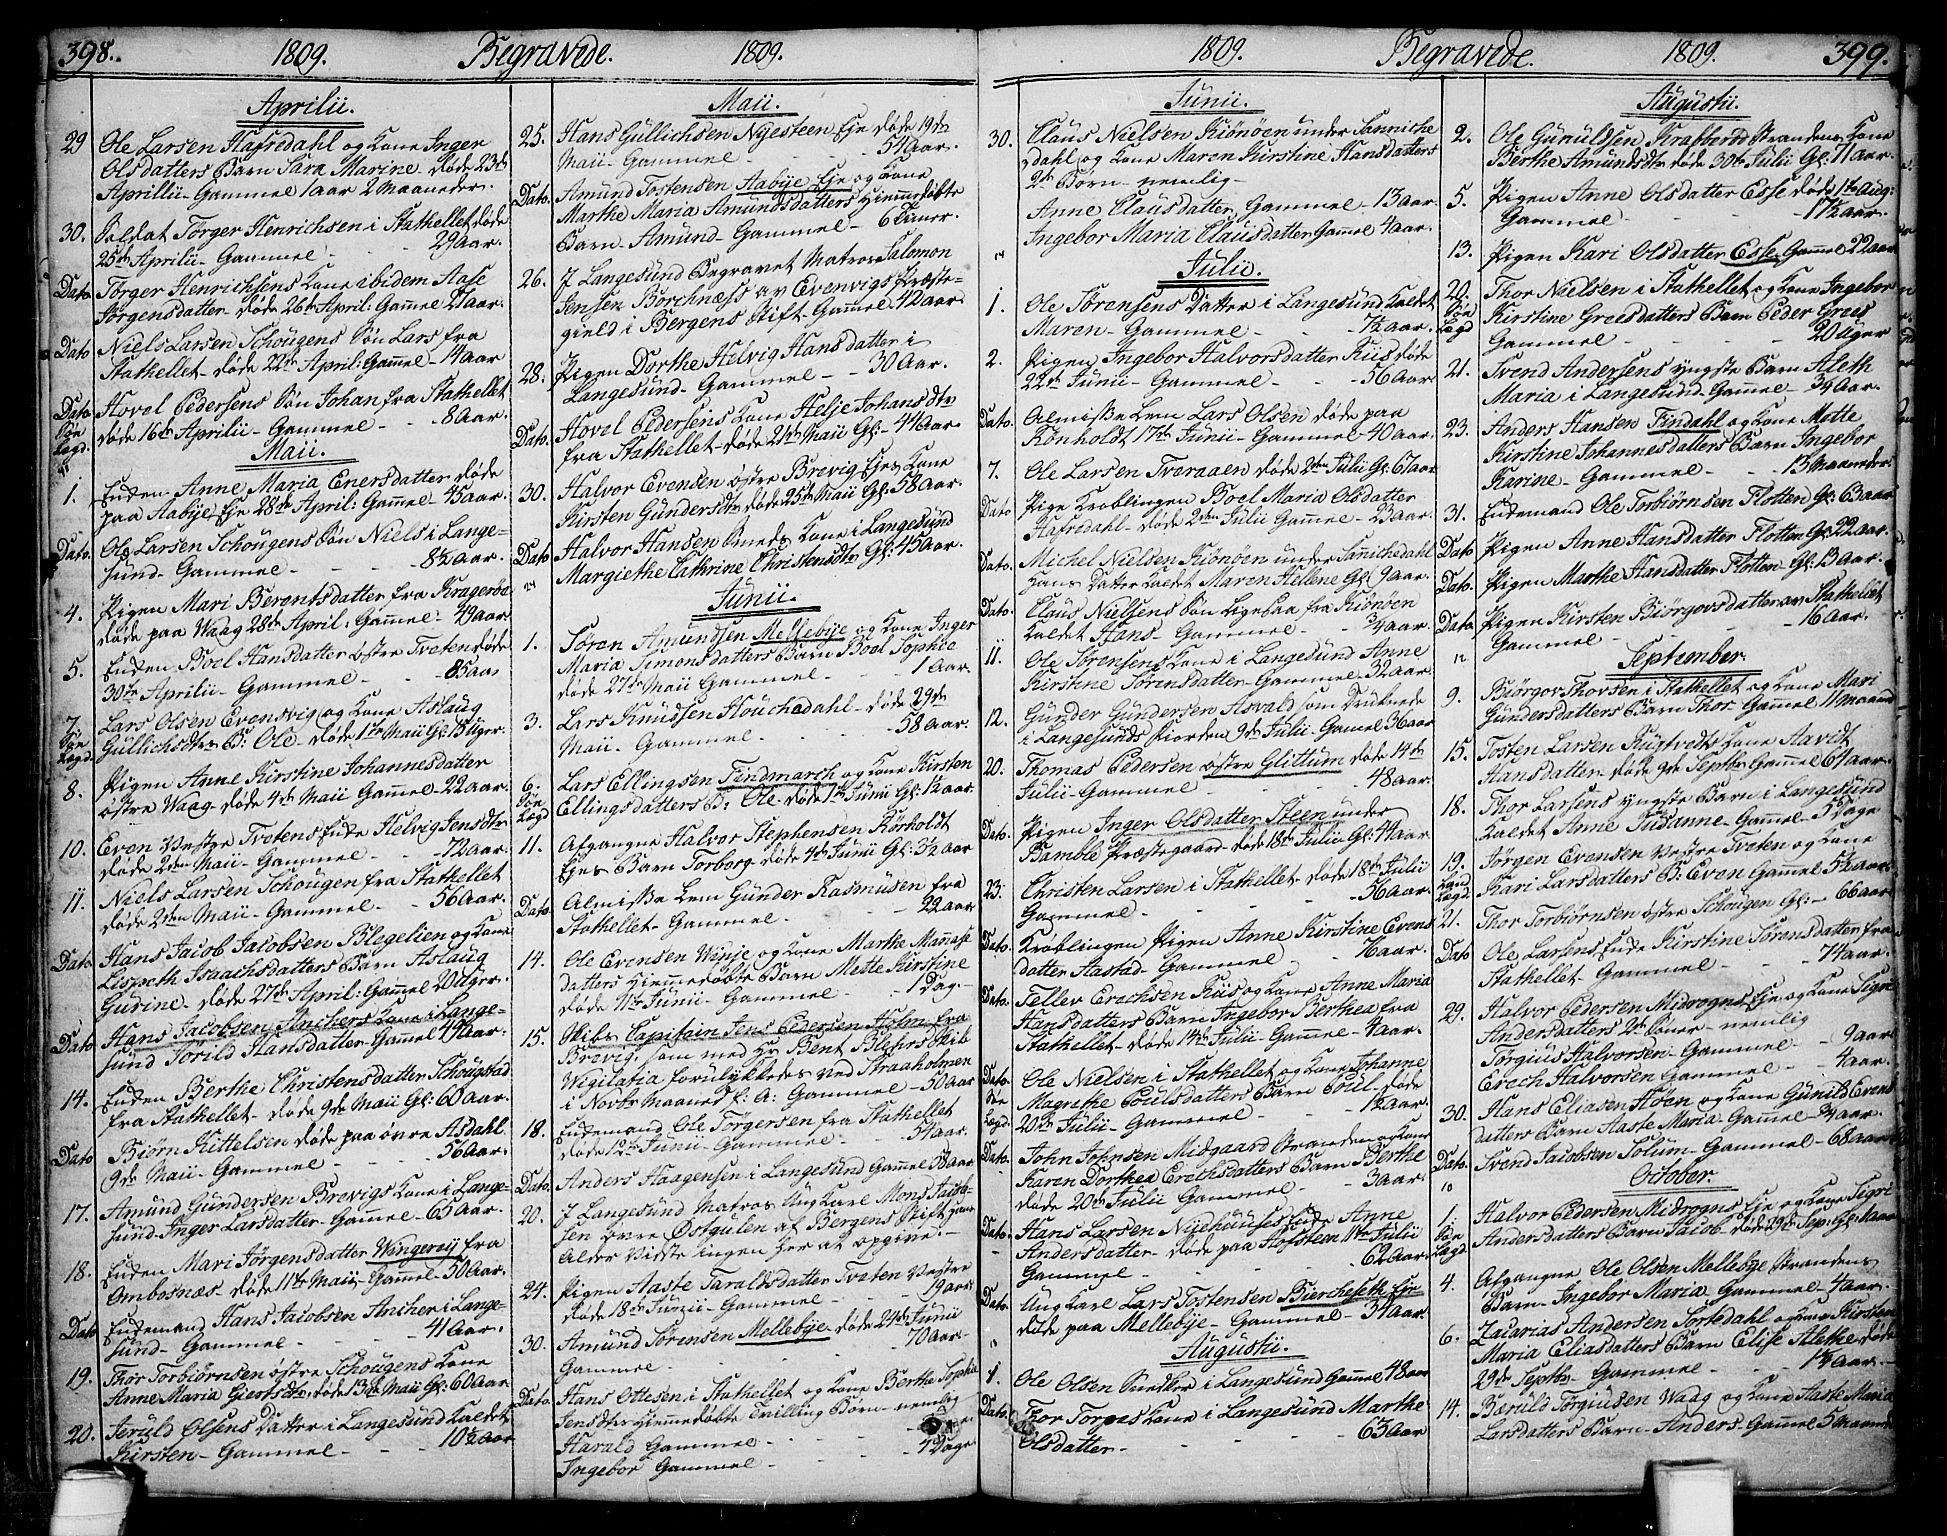 398. 1809. Begravede. 1809.
Aprilii.
29 Ole Larsen Hafsdahl og Kone Inger
Olsdatters Barn Sara Marine døde 23de
Aprilii - Gammel 1 aar 2 Maaneder.
30. Soldat Törger Henrichsen i Stathellet døde
25de Aprilii - Gammel - 29 Aar.
Dato Törger Henrichsens Kone ibidem Aase
Jörgensdatter - døde 26de April: Gamel 27 aar.
Dato Niels Larsen Schougens Sön Lars fra
Stathellet - døde 22de April: Gamel - 14 Aar
Dato Hovel Pedersens Sön Johan fra Stathellet
døde 16de Aprilii - Gammel - 8 Aar.
Maii.
1. Enken Anne Maria Enersdatter døde
paa Aabye Eje 28de April: Gamel 45 aar.
Dato. Ole Larsen Schougens Sön Niels i Lange-
sund - Gammel - 8½ Aar.
4. Pigen Mari Berentsdatter fra Kragerøe
døde paa Waag 28de April: Gamel -
5. Enken Boel Hansdatter østre Tveten døde
30te Aprilii - Gammel - 85 aar
7. Lars Olsen Evensvig og Kone Aslaug
Gullichsdtrs B: Ole - døde 1te Maii Gl: 15 Uger.
8. Pigen Anne Kirstine Johannesdatter
østre Waag - døde 4de Maii Gamel - 22 aar.
10. Even Vestre Tvetens Enke Helvig Jensdtr
døde 2den Maii - Gammel - 72 aar.
11. Niels Larsen Schougen fra Stathellet
døde 2den Maii - Gammel - 56 Aar.
Dato Hans Jacob Jacobsen Blegelien og Kone
Lisbeth Isaachsdatters Barn Aslaug
Gurine - døde 27de April: Gamel 20 Ugr.
Dato Hans Jacobsen Anchers Kone i Lange-
sund Torild Hansdatter - Gamel 49 Aar.
14. Enken Berthe Christensdatter Schougstad
fra Stathellet - døde 9de Maii Gl: 60 Aar.
Dato Biörn Kittelsen døde paa øvre Asdahl
9de Maii - Gammel - 56 Aar.
17. Amund Gundersen Brevigs Kone i Lange-
sund - Inger Larsdatter - Gamel - 65 Aar.
18. Enken Mari Jörgensdatter Wingereij fra
Ombosnæs - døde 11te Maii - Gamel - 50 Aar.
Dato Enkemand Hans Jacobsen Ancher i Lange-
sund - Gammel - 41 Aar.
19. Thor Torbiörnsen østre Schougens Kone
Anne Maria Giertsdtr døde 13de Maii Gl: 60 aar
20. Jeruld Olsens Datter i Langesund Kaldet
Kirsten - Gammel - 10½ aar
25. Hans Gullichsen Nyesteen Eje døde 19de
Maii - Gammel - 51 Aar.
Dato. Amund Tostensen Aabye Eje og Kone
Marthe Maria Amundsdatters Hiemmedøbte
Barn - Amund - Gammel - 6 timer.
26. J Langesund Begravet Matros Salomon
Jensen Borchnæss av Evenvigs Præste-
gield i Bergens Stift - Gamel - 42 Aar.
28. Pigen Dorthe Helvig Hansdatter i
Langesund - Gammel - 30 Aar.
Dato. Hovel Pedersens Kone Helje Johansdtr
fra Stathellet - døde 21de Maii Gl: - 44 Aar.
30. Halvor Evensen østre Brevig Ejes Kone
Kirsten Gundersdtr døde 25de Maii Gl: 58 Aar.
Dato Halvor Hansen Smeds Kone i Langesund
Margiethe Cathrine Christensdtr Gl: 45 Aar.
Junii.
1. Søren Amundsen Mellebye og Kone Inger
Maria Simonsdatters Barn Boel Sophie
døde 27de Maii Gammel - 1 Aar.
3. Lars Knudsen Stouchedahl - døde 29de
Maii - Gammel - 58 Aar.
6. Lars Ellingsen Findmarch og Kone Kirsten
Ellingsdatters B: Ole døde 1te Junii Gl: ½ aar.
11. Afgangne Halvor Stephensen Rörholdt
Ejes Barn Torborg døde 4de Junii Gl: 3½ aar
Dato. Almisse Lem Gunder Rasmusen fra
Stathellet - Gammel - 22 aar
14. Ole Evensen Winje og Kone Marthe Manase
datters Hjemmedøbte Barn Mette Kirstine
døde 11te Junii - Gammel - 1 Dag.
15. Skibs Capitain Jens Pedersen Holm fra
Brevig, som med Hr Bent Blehrs Skib
Wigilatia forulykkedes ved Straaholmen
i Novbr Maaned f: A: Gammel - 50 Aar
18. Enkemand Ole Törgersen fra Stathellet
døde 12te Junii - Gammel - 54 aar.
Dato. Anders Haagensen i Langesund Gamel 58 aar
20. J Langesund Matros Ung Karl Mons Jacob-
sen øvre Østgulen af Bergens Stift hans
Alder Vidste ingen her at opgive. -
24. Pigen Aaste Taraldsdatter Tveten Vestre
døde 18de Junii - Gammel - 19 aar.
30. Amund Sørensen Mellebye - døde 24de Junii
Gammel - 70 Aar.
Dato. Hans Ottesen i Stathellet og Kone Berthe Sophie
Jensdtrs Hjemmedøbte Tvilling Børn - nemlig
Harald Gammel -
Ingebor Gammel - 4 Dage
1809. Begravede. 1809. 399.
Junii.
30. Claus Nielsen Kiönöen under Sanniche
dahl og Kone Maren Kirstine Hansdatters
2de Børn - nemlig -
Anne Clausdatter Gammel - 13 aar
Ingebor Maria Clausdatter Gamel 4 aar.
Julii.
1. Ole Sørensens Datter i Langesund Kaldet
Maren - Gammel - 7½ aar.
2. Pigen Ingebor Halvorsdatter Riis døde
22de Junii - Gammel - 56 Aar.
Dato. Almisse Lem Lars Olsen døde paa
Rönholdt 17de Junii - Gammel - 40 Aar.
7. Ole Larsen Tveraaen døde 2den Julii Gl: 67 aar
Dato Pige Krøblingen Boel Maria Olsdatter
Hafsdahl døde 2den Julii Gamel - 23 aar.
Dato. Michel Nielsen Kiönöen under Sanichedahl
hans Datter Kaldet Maren Hellene Gl: 9 aar.
Dato. Claus Nielsens Sön Ligesaa fra Kiönöen
Kaldet Hans - Gammel - ¾ aar.
11. Ole Sørensens Kone i Langesund Anne
Kirstine Sørensdatter - Gammel - 32 aar.
12. Gunder Gundersen Asvald som Druknede
i Langesunds Fiorden 9de Julii - Gamel 36 aar
20. Thomas Pedersen østre Glittum døde 14de
Julii - Gammel - 48 aar.
Dato. Pigen Inger Olsdatter Steen under
Bamble Præstegaard - døde 18de Julii Gl: 44 aar.
23. Christen Larsen i Stathellet - døde 18de Julii
Gammel - 56 Aar.
Dato. Krøblingen Pigen Anne Kirstine Evens
datter Stastad - Gammel - 16 aar.
Dato. Tellev Erechsen Riis og Kone Anne Maria
Hansdatters Barn Ingebor Berthea fra
Stathellet - døde 14de Julii - Gamel - 4 aar.
Dato. Ole Nielsen i Stathellet og Kone Johanne
Magrethe Poulsdatters Barn Poul - døde
20de Julii - Gammel - 1½ aar.
Dato. John Johnsen Midgaard Stranden og Kone
Karen Dorthea Erechsdatters Barn Berthe
døde 20de Julii Gammel - 3 aar.
Dato. Hans Larsen Nyehuuses Enke Anne
Andersdatter - døde paa Hofsteen 11te Julii
Gammel - 62 Aar.
Dato. Ung Karl Lars Tostensen Bierchesæth
døde paa Mellebye - Gammel - 34 aar.
Augustii.
1. Ole Olsen Snedker i Langesund Gamel 48 aar
Dato. Thor Torgers Kone i Langesund Marthe
Olsdatter - 63 Aar
Augustii.
2. Ole Guruldsen Krabberød Strandens Kone
Berthe Amundsdtr døde 30te Julii Gl: 71 aar.
5. Pigen Anne Olsdatter Esse døde 1te Aug:
Gammel - 17½ aar.
13. Pigen Kari Olsdatter Esse Gamel 22 aar
20. Thor Nielsen i Stathellet og Kone Ingebor
Kirstine Greesdatters Barn Peder Grees
Gammel - 20 Uger
21. Svend Andersens yngste Barn Aleth
Maria i Langesund - Gamel - ¾ aar.
23. Anders Hansen Findahl og Kone Mette
Kirstine Johannesdatters Barn Ingebor
Karine - Gammel - 13 Maaneder.
31. Enkemand Ole Torbiörnsen Flotten Gl: 63 aar
Dato Pigen Anne Hansdatter Flotten Gl: 22 aar.
Dato. Pigen Marthe Hansdatter Flotten Gl: 13 Aar.
Dato. Pigen Kirsten Biörgovsdatter av Stathellet
Gammel - 16 aar.
September.
9. Biörgov Thorsen i Stathellet og Kone Mari
Gundersdatters Barn Thor - Gammel 11 maand
15. Tosten Larsen Rugtvedts Kone Aavidt
Hansdatter - døde 9de Septbr Gamel 61 aar.
18. Thor Larsens yngste Barn i Langesund
Kaldet Anne Susanne - Gamel - 5 Dage
19. Jörgen Evensen Vestre Tveten og Kone
Kari Larsdatters B: Even Gamel 5½ aar
21. Thor Torbiörnsen østre Schougen Gl: - 66 aar
Dato Ole Larsens Enke Kirstine Sørensdatter fra
Stathellet - Gammel - 74 aar.
29. Halvor Pedersen Midrogns Eje og Kone Sigri
Andersdatters 2de Sønner - nemlig
Torgius Halvorsen - Gammel - 9 aar
Erech Halvorsen Gammel - 4 aar.
30. Hans Eliasen Hoen og Kone Gunild Evens
datters Barn Aaste Maria - Gamel - ¾ aar.
Dato. Svend Jacobsen Solum - Gammel - 68 aar
October.
1. Halvor Pedersen Midrogns Eje og Kone Sigri
Andersdatters Barn Jacob døde 19de Sep: Gl: 1 aar
4. Afgangne Ole Olsen Mellebye Strandens
Barn - Ingebor Maria - Gammel - 4 aar.
6. Zacarias Andersen Sortedahl og Kone Kirsten
Maria Eliasdatters Barn Elise Alethe døde
29de Septbr - Gammel - 1½ aar. -
14. Bæruld Torgiusen Waag og Kone Aaste Maria
Larsdatters Barn - Anders - Gamel 5 maaneder